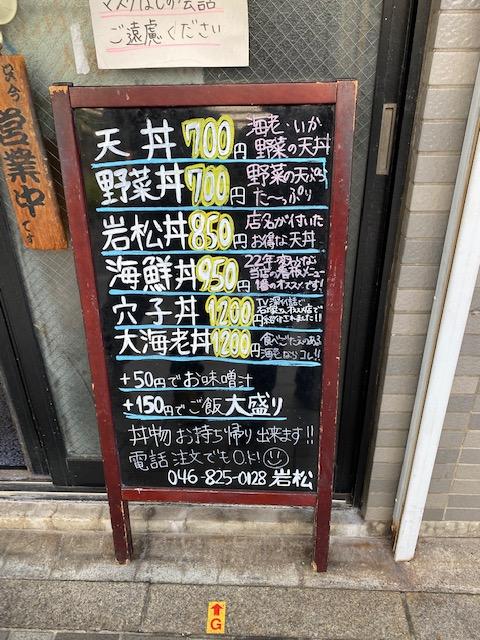 マスクなしの会話
ご遠慮ください
只今
営業中
です
天丼 700円 海老・いか
野菜の天丼
野菜丼 700円 野菜の天ぷら
た〜っぷり
岩松丼 850円 店名が付いた
お得な天丼
海鮮丼 950円 22年変わらな
当店の看板メニュー
1番のオススメです!
穴子丼 1200円 TV
で紹介されました!!
大海老丼 1200円 食べごたえのある
海老ならコレ!!
+50円でお味噌汁
+150円でご飯大盛り
丼物お持ち帰り出来ます!!
電話注文でもO.K!
046-825-0128 岩松
G